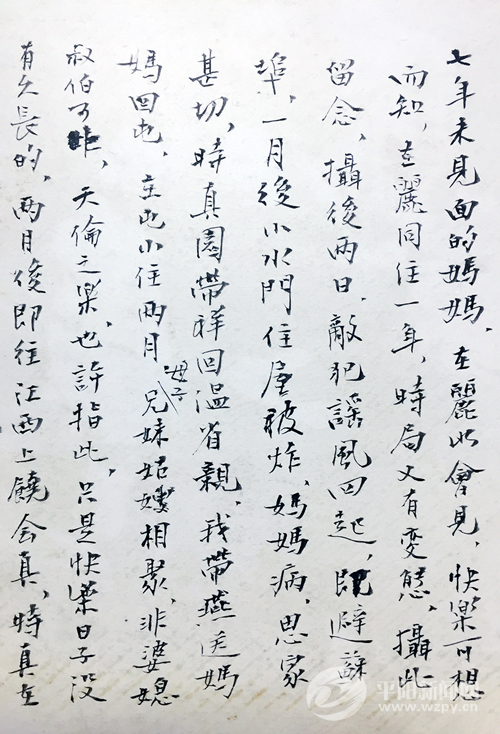 七年未見面的媽媽，在麗水會見，快樂可想
而知，在麗同住一年，時局又有変態，攝此
留念，攝後兩日，敵犯謠風四起，既避蘇
埠，一月後小水門住屋被炸，媽媽病，思家
甚切，時真園帶祥回溫省親，我帶燕送媽
媽回屯，在屯小住兩月，母子兄妹姑嫂相聚，非婆媳
叔伯可非，天倫之樂，也許指此，只是快樂日子没
有久長的，兩月後即往江西上饒会真，時真在
平阳新闻网
www.wzpy.cn